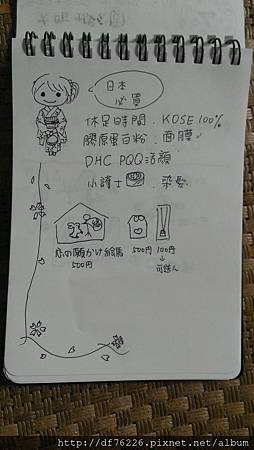 日本
必買
休足時間、KOSE 100%
膠原蛋白粉、面膜
DHC PQQ活顏
小護士、染髮
恋の願かけ絵馬
500円
500円
100円
可送人
http://df76226.pixnet.net/album